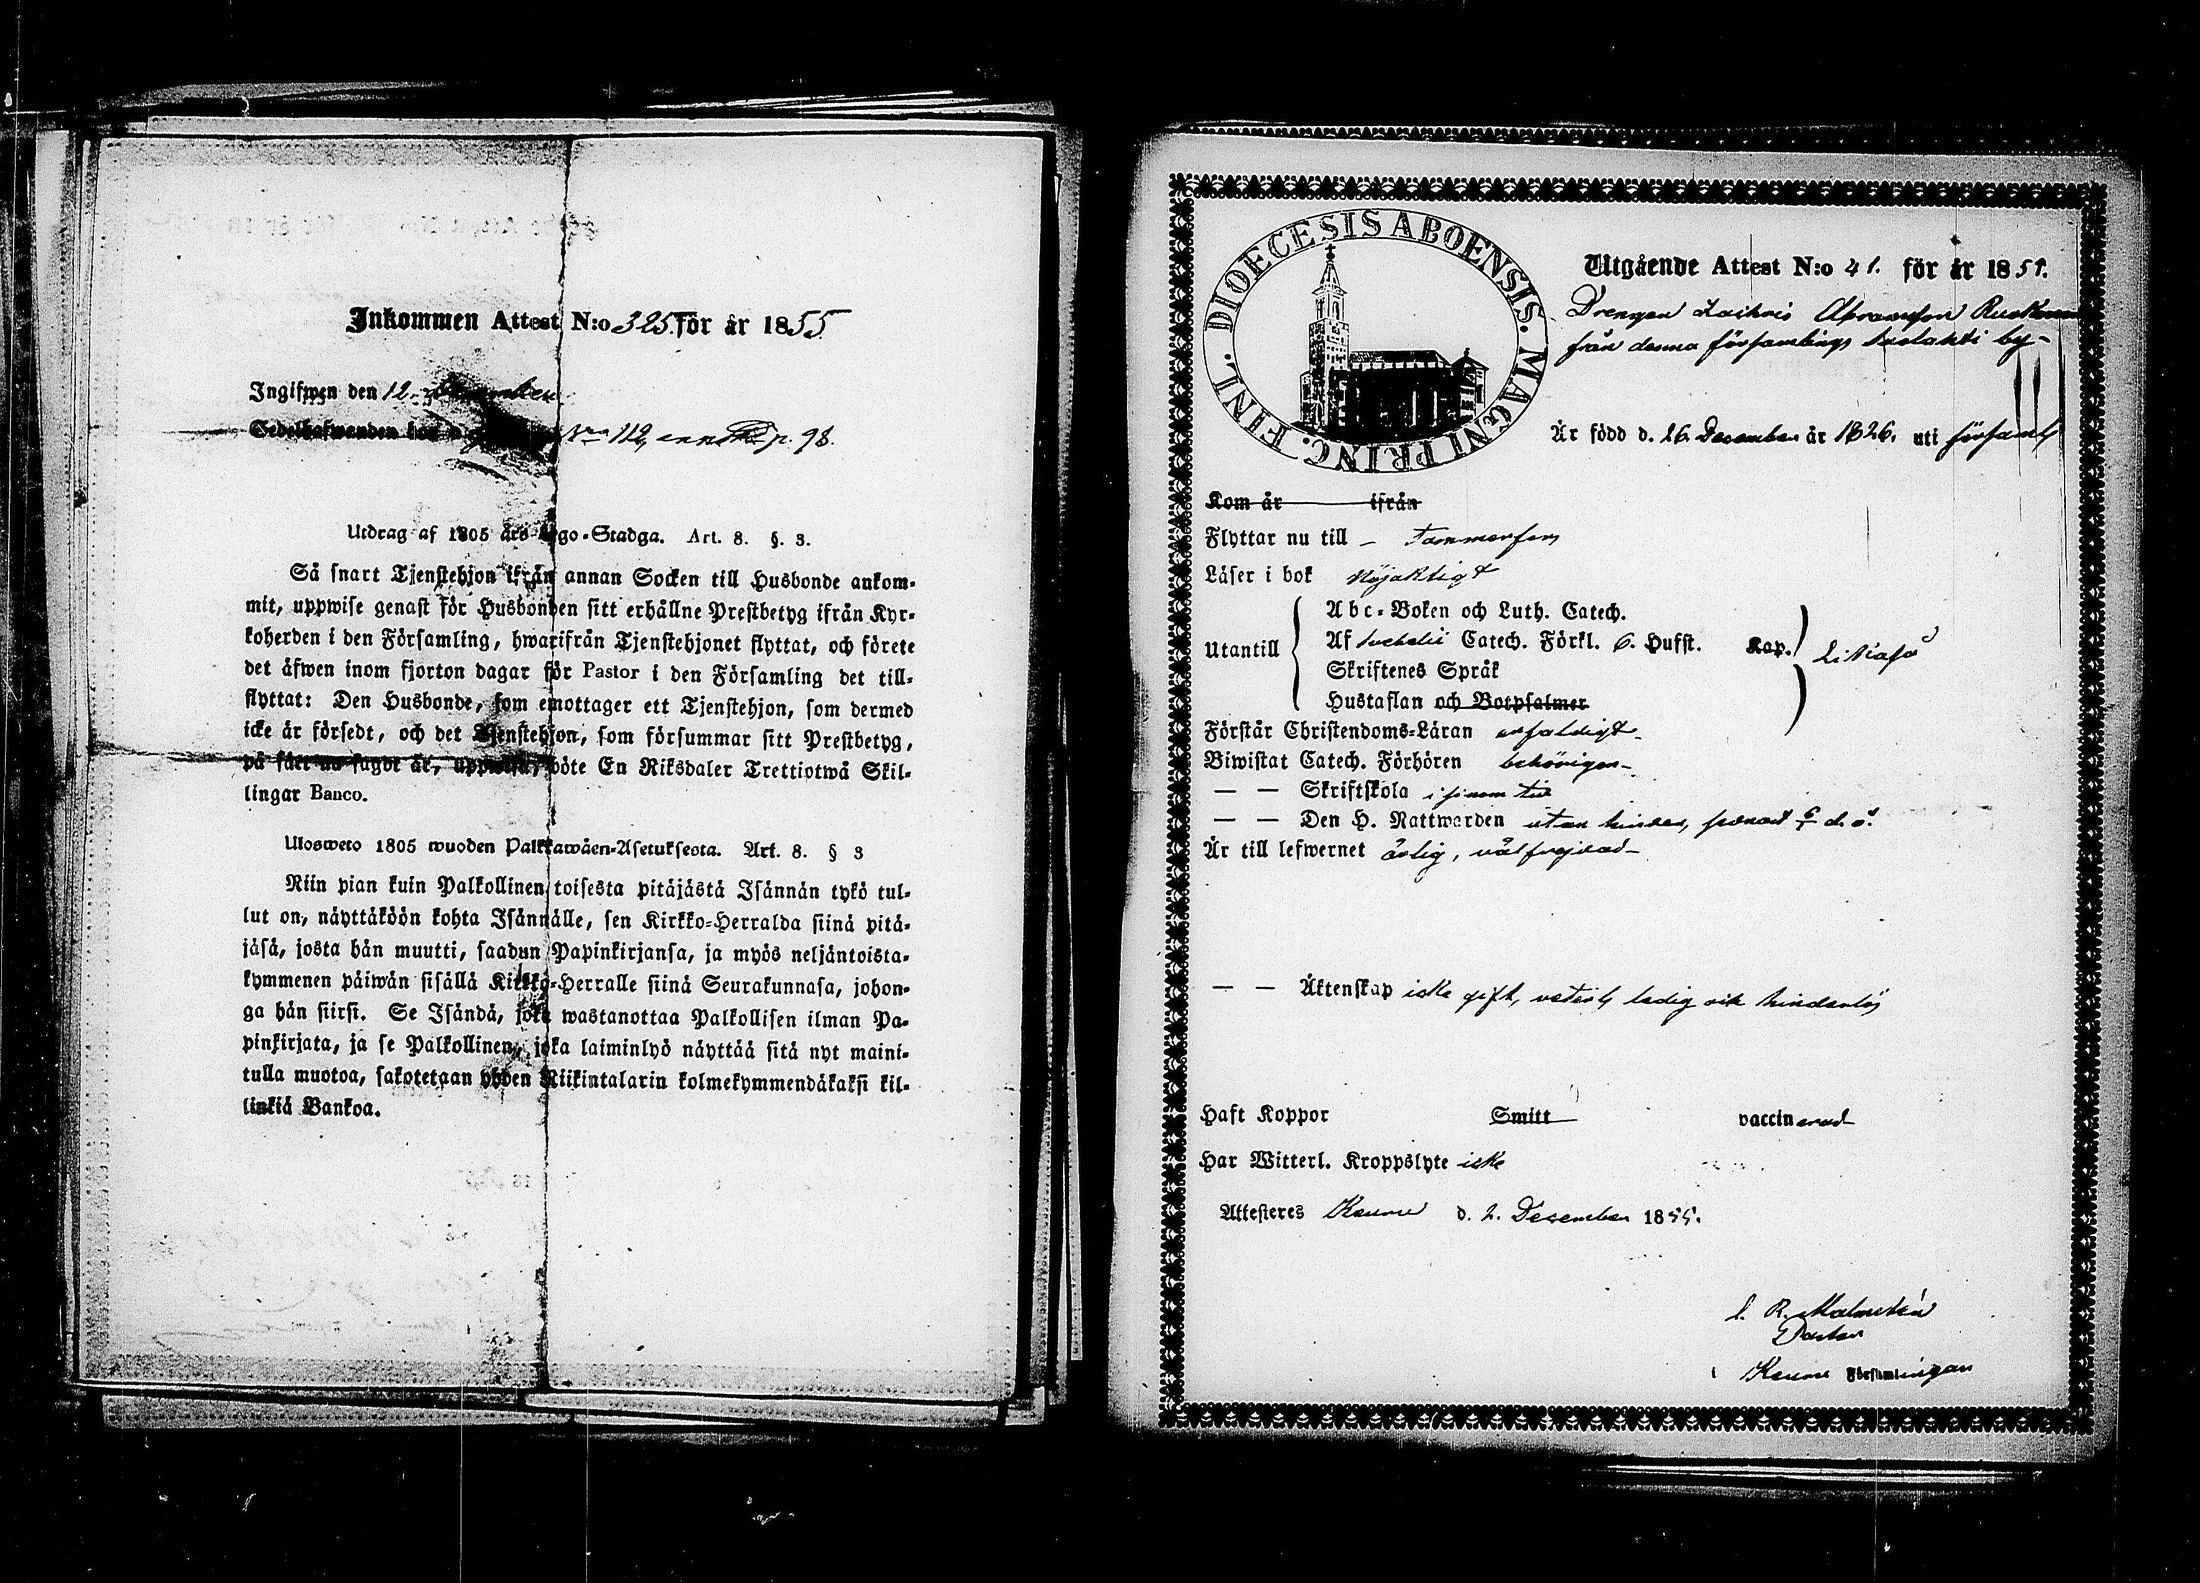 Inkommen Attest N:o 325 för år 1855
Ingifwen den 12 December
Sedelhafwanden N:o 112, p. 98.
Utdrag af 1805 års Lego-Stadga. Art. 8. §. 3.
Så snart Tjenstehjon ifrån annan Socken till Husbonde ankom-
mit, uppwise genast för Husbonden sitt erhållne Prestbetyg ifrån Kyr-
koherden i den Församling, hwarifrån Tjenstehjonet flyttat, och förete
det äfwen inom fjorton dagar för Pastor i den Församling det till-
flyttat: Den Husbonde, som emottager ett Tjenstehjon, som dermed
icke är försedt, och det Tjenstehjon, som försummar sitt Prestbetyg,
på sätt nu sagdt är, uppwisa, böte En Riksdaler Trettiotwå Skil-
lingar Banco.
Ulosweto 1805 wuoden Palkkawäen-Asetuksesta. Art. 8. § 3
Niin pian kuin Palkollinen toisesta pitäjästä Isännän tykö tul-
lut on, näyttäköön kohta Isännälle, sen Kirkko-Herralda siinä pitä-
jäsä, josta hän muutti, saadun Papinkirjansa, ja myös neljäntoista-
kymmenen päiwän sisällä Kirkko-Herralle siinä Seurakunnasa, johon-
ga hän siirsi. Se Isändä, joka wastanottaa Palkollisen ilman Pa-
pinkirjata, ja se Palkollinen, joka laiminlyö näyttää sitä nyt maini-
tulla muotoa, sakotetaan yhden Riikintalarin kolmekymmendäkaksi kil-
linkiä Bankoa.
DIOECESIS ABOENSIS. MAGNI PRINC. FINL.
Utgående Attest N:o 41. för år 1855.
Drengen Abramsson
från denna församlings by-
Är född d. 26. December år 1826. uti församl
Kom år ifrån
Flyttar nu till - Tammerfors
Läser i bok Nöjaktigt
Utantill
Abc-Boken och Luth. Catech.
Af Svebelii Catech. Förkl. 6. Hufst. Kap.
Skriftenes Språk
Hustaflan och Botpsalmer
Likaså
Förstår Christendoms-Läran enfaldigt
Biwistat Catech. Förhören behörigen-
— — Skriftskola i sinom tid
— — Den H. Nattwarden utan hinder, senast d. å.
Är till lefwernet ärlig, välfrejdad-
— — Äktenskap icke gift, veterl. ledig och hinderlös
Haft Koppor Smitt vaccinerad
Har Witterl. Kroppslyte icke
Attesteres Keuru d. 2. December 1855.
R. Malmstén
Pastor
i Keuru Församlingen